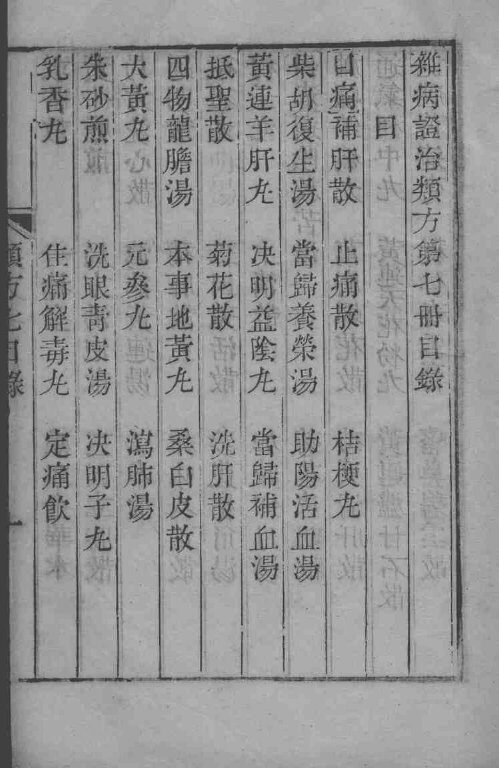 雜病證治類方第七冊目錄
目
目痛補肝散 止痛散 桔梗丸
柴胡復生湯 當歸養榮湯 助陽活血湯
黃連羊肝丸 決明益陰丸 當歸補血湯
抵聖散 菊花散 洗肝散
四物龍膽湯 本事地黃丸 桑白皮散
大黃丸 元參丸 瀉肺湯
朱砂煎 洗眼青皮湯 決明子丸
乳香丸 住痛解毒丸 定痛飲
類方七目錄 一